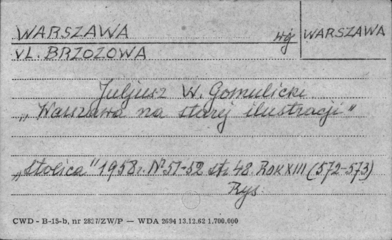 WARSZAWA wg WARSZAWA
VL. BRZOZOWA
Juljusz W. Gomulicki
„Warszawa na starej ilustracji"
„Stolica" 1958 r. Nº 51-52 str. 48. ROK XIII (572-573)
Rys.
CWD - B-15-b, nr 2827/ZW/P — WDA 2694 13.12.62 1.700.000